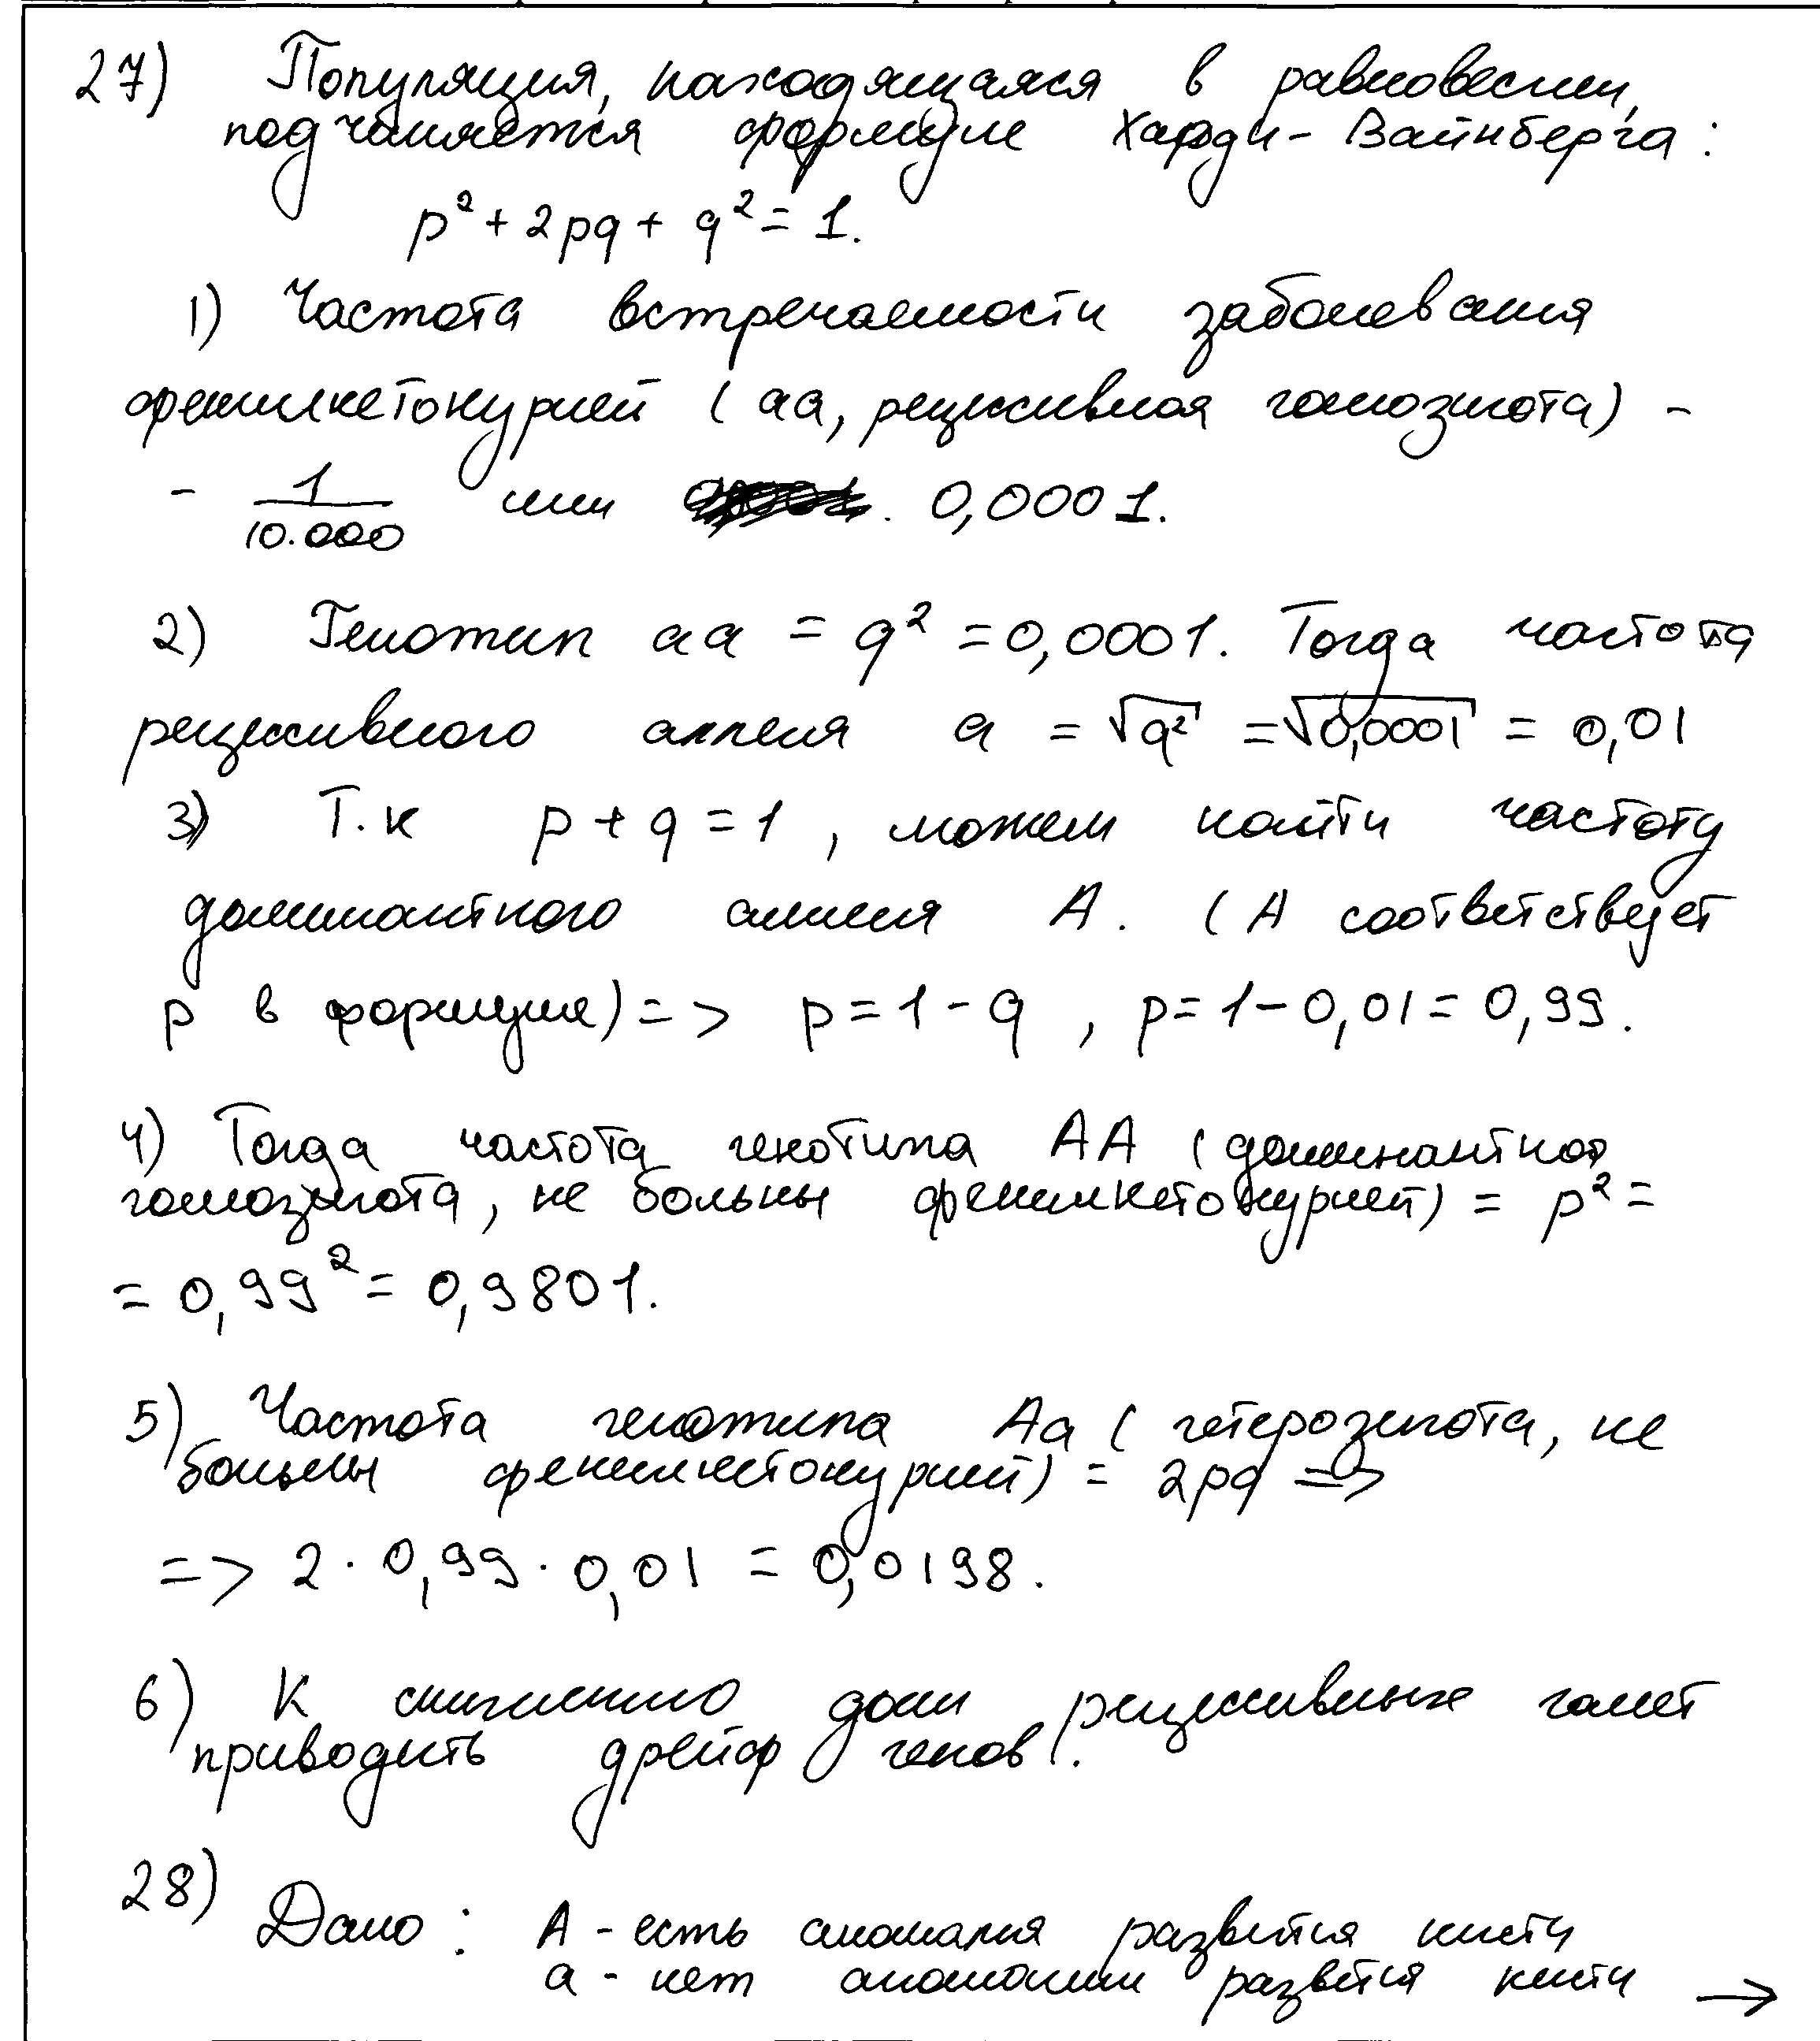 27) Популяция, находящаяся в равновесии,
подчиняется формуле Харди-Вайнберга:
p² + 2pq + q² = 1.
1) Частота встречаемости заболевания
фенилкетонурией (aa, рецессивная гомозигота) -
- 1/10.000 или 0,0001.
2) Генотип aa = q² = 0,0001. Тогда частота
рецессивного аллеля a = √q² = √0,0001 = 0,01
3) Т.к p + q = 1, можем найти частоту
доминантного аллеля A. (A соответствует
p в формуле) => p = 1 - q, p = 1 - 0,01 = 0,99.
4) Тогда частота генотипа AA (доминантная
гомозигота, не больны фенилкетонурией) = p² =
= 0,99² = 0,9801.
5) Частота генотипа Aa (гетерозигота, не
больны фенилкетонурией) = 2pq =>
=> 2 · 0,99 · 0,01 = 0,0198.
6) К снижению доли рецессивных гамет
приводить дрейф генов.
28) Дано: A - есть аномалия развития кисти
a - нет аномалии развития кисти →